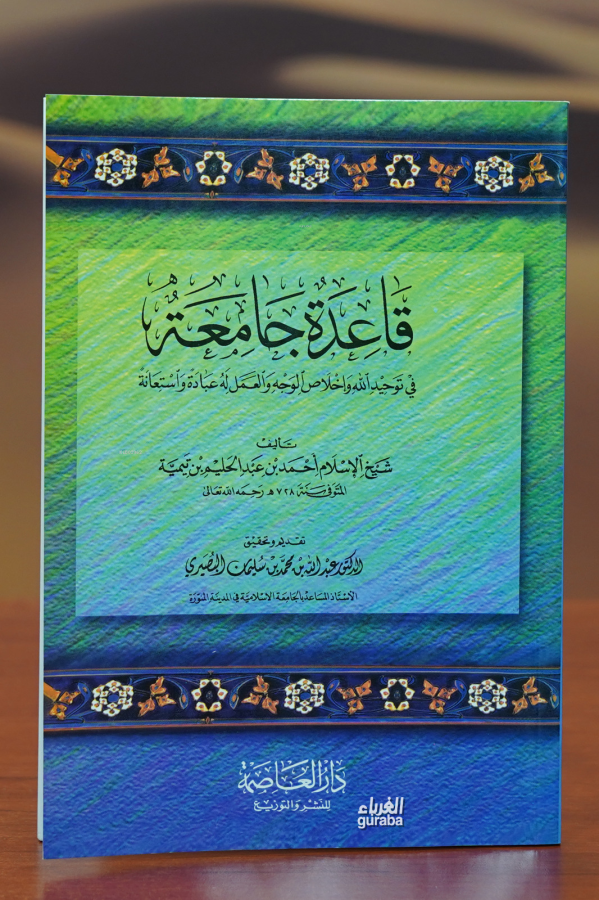 قَاعِدَةٌ جَامِعَةٌ
في توحيد الله وإخلاص الوجه والعمل له عبادة واستعانة
تأليف
شيخ الإسلام أحمد بن عبد الحليم بن تيمية
المتوفى سنة ٧٢٨ ه رحمه الله تعالى
تقديم وتحقيق
الدكتور عبد الله بن محمد بن سليمان البصيري
الأستاذ المساعد بالجامعة الإسلامية في المدينة المنورة
دار العاصمة
للنشر والتوزيع
الغرباء
guraba